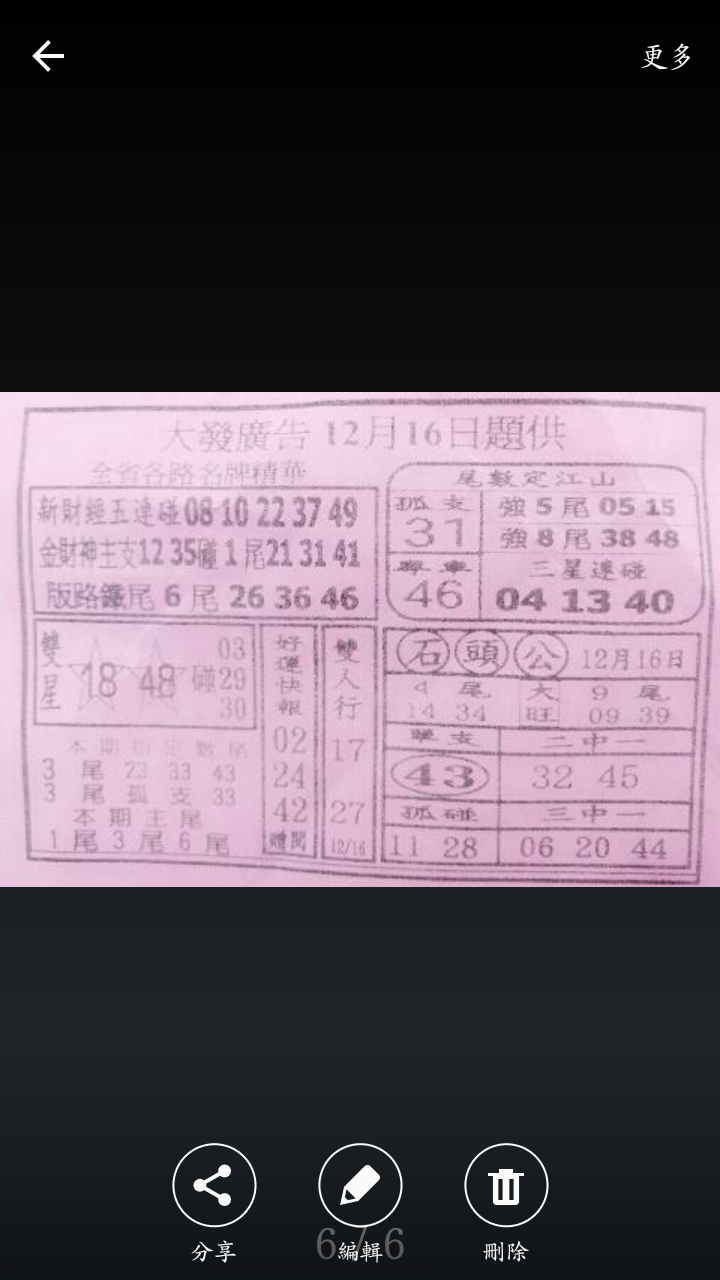 更多
大發廣告 12月16日題供
全省各路名牌精華
新財經五連碰 08 10 22 37 49
金財神主支 12 35 碰 1 尾 21 31 41
版路鐵尾 6 尾 26 36 46
尾數定江山
孤支 31
強 5 尾 05 15
強 8 尾 38 48
專車 46
三星連碰
04 13 40
雙星 18 48 碰 03 29 30
本期指定數尾
3 尾 23 33 43
3 尾 孤支 33
本期主尾
1 尾 3 尾 6 尾
好運快報
02
24
42
贈閱
雙人行
17
27
12/16
石頭公 12月16日
4 尾 14 34
大旺
9 尾 09 39
單支 43
二中一
32 45
孤碰
11 28
三中一
06 20 44
6 / 6
分享
編輯
刪除